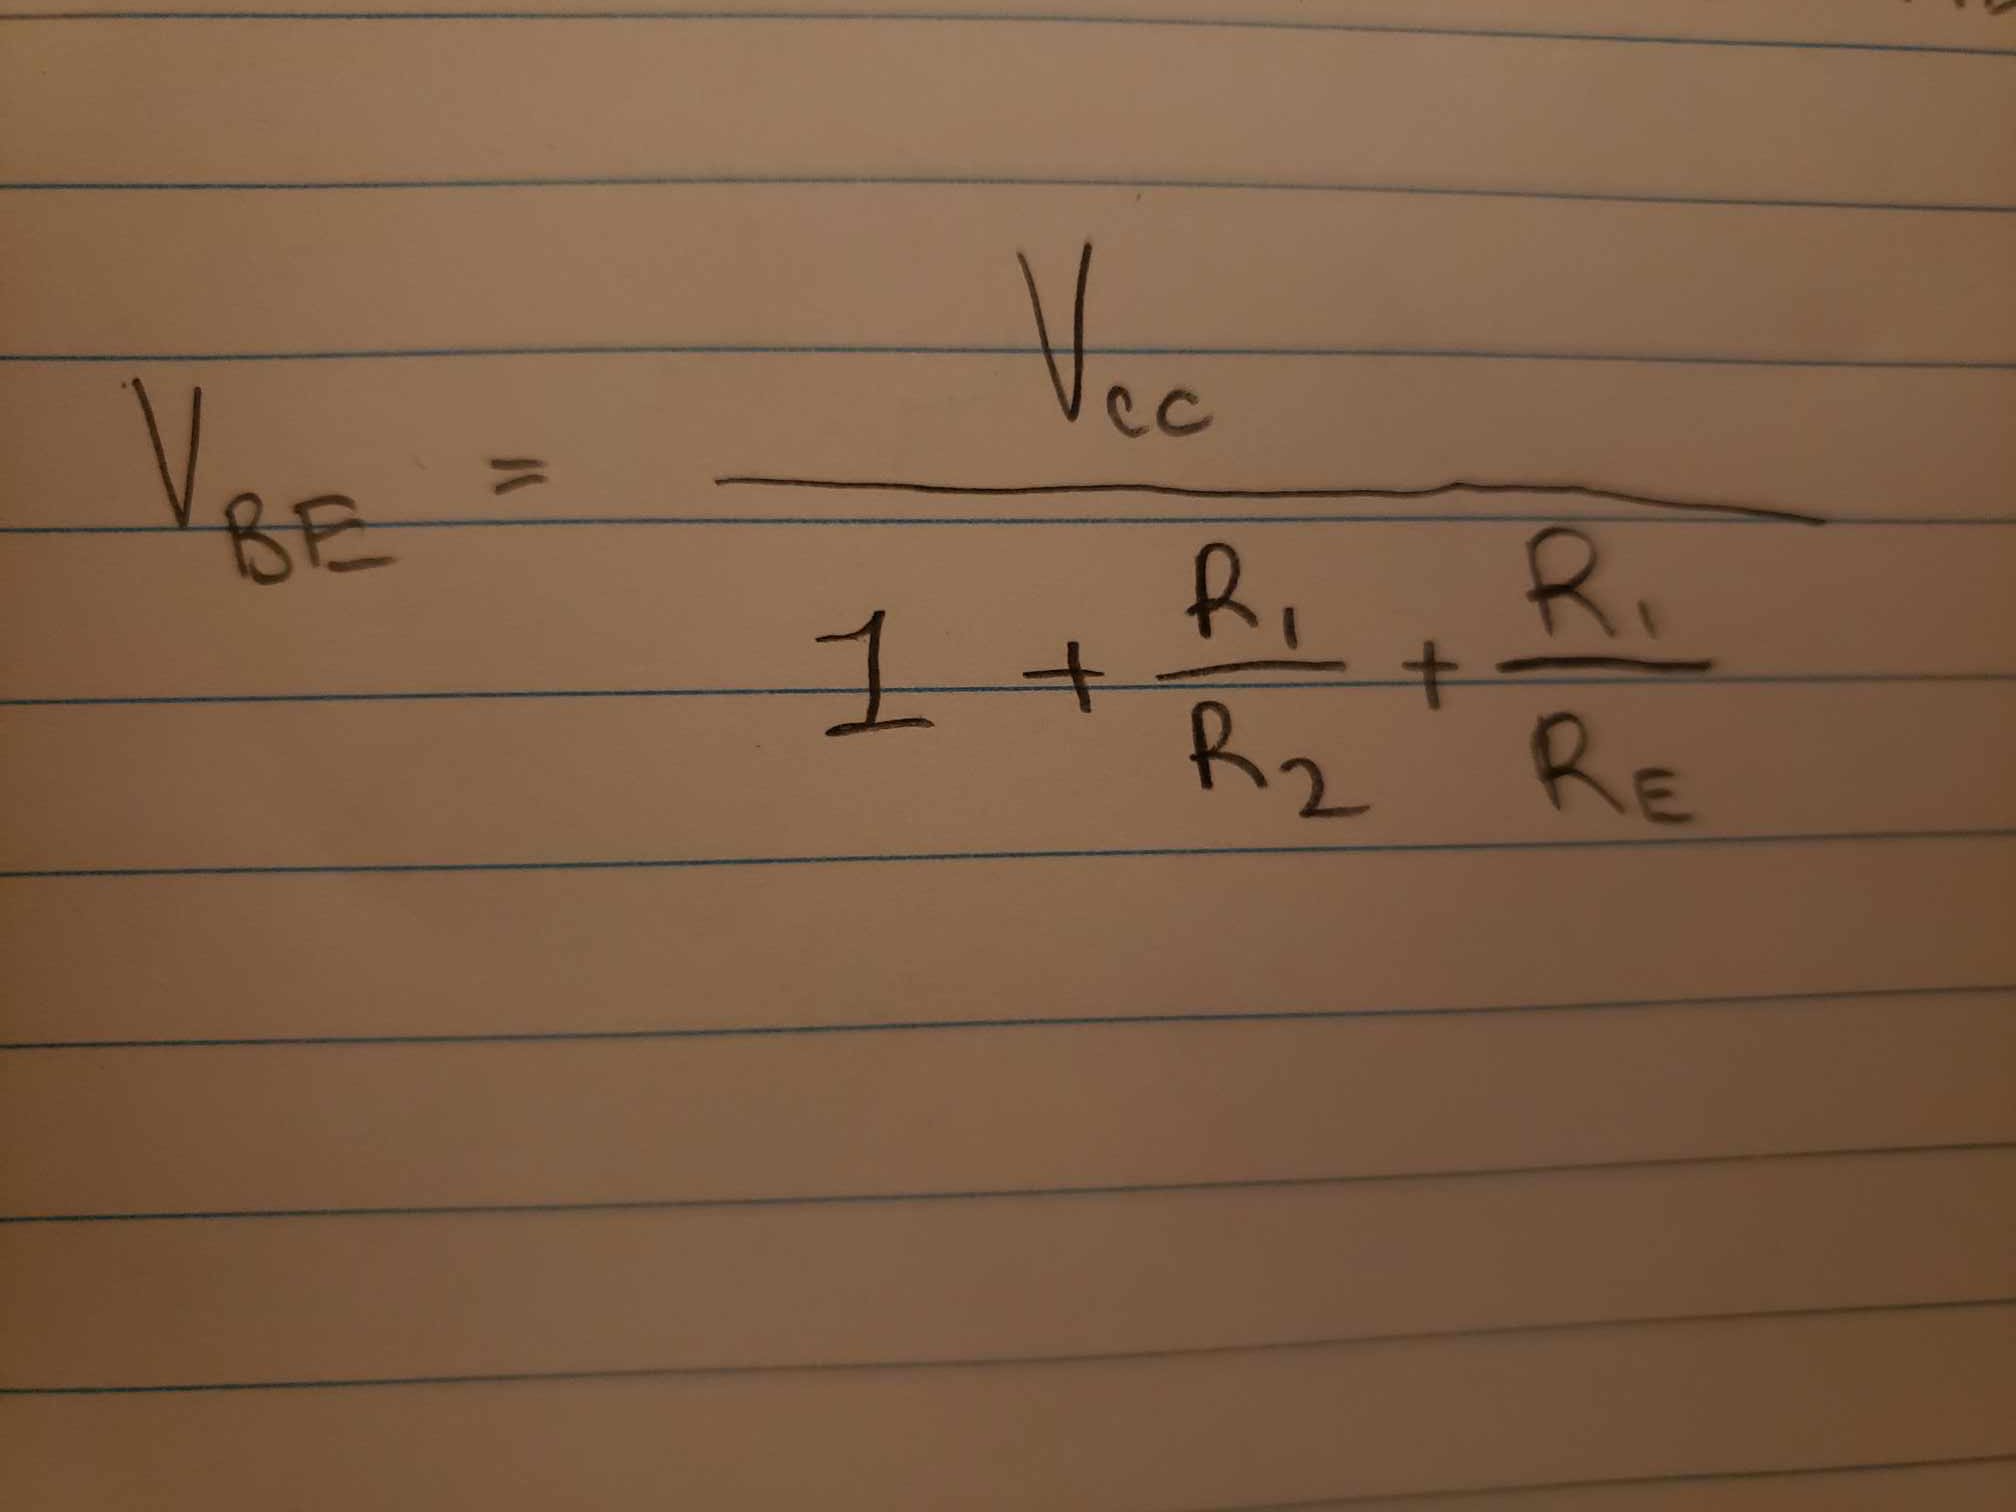 V_BE = V_cc / (1 + R_1/R_2 + R_1/R_E)